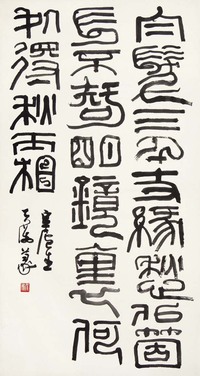 白髮三千丈緣愁似箇
長不知明鏡裏何
處得秋霜